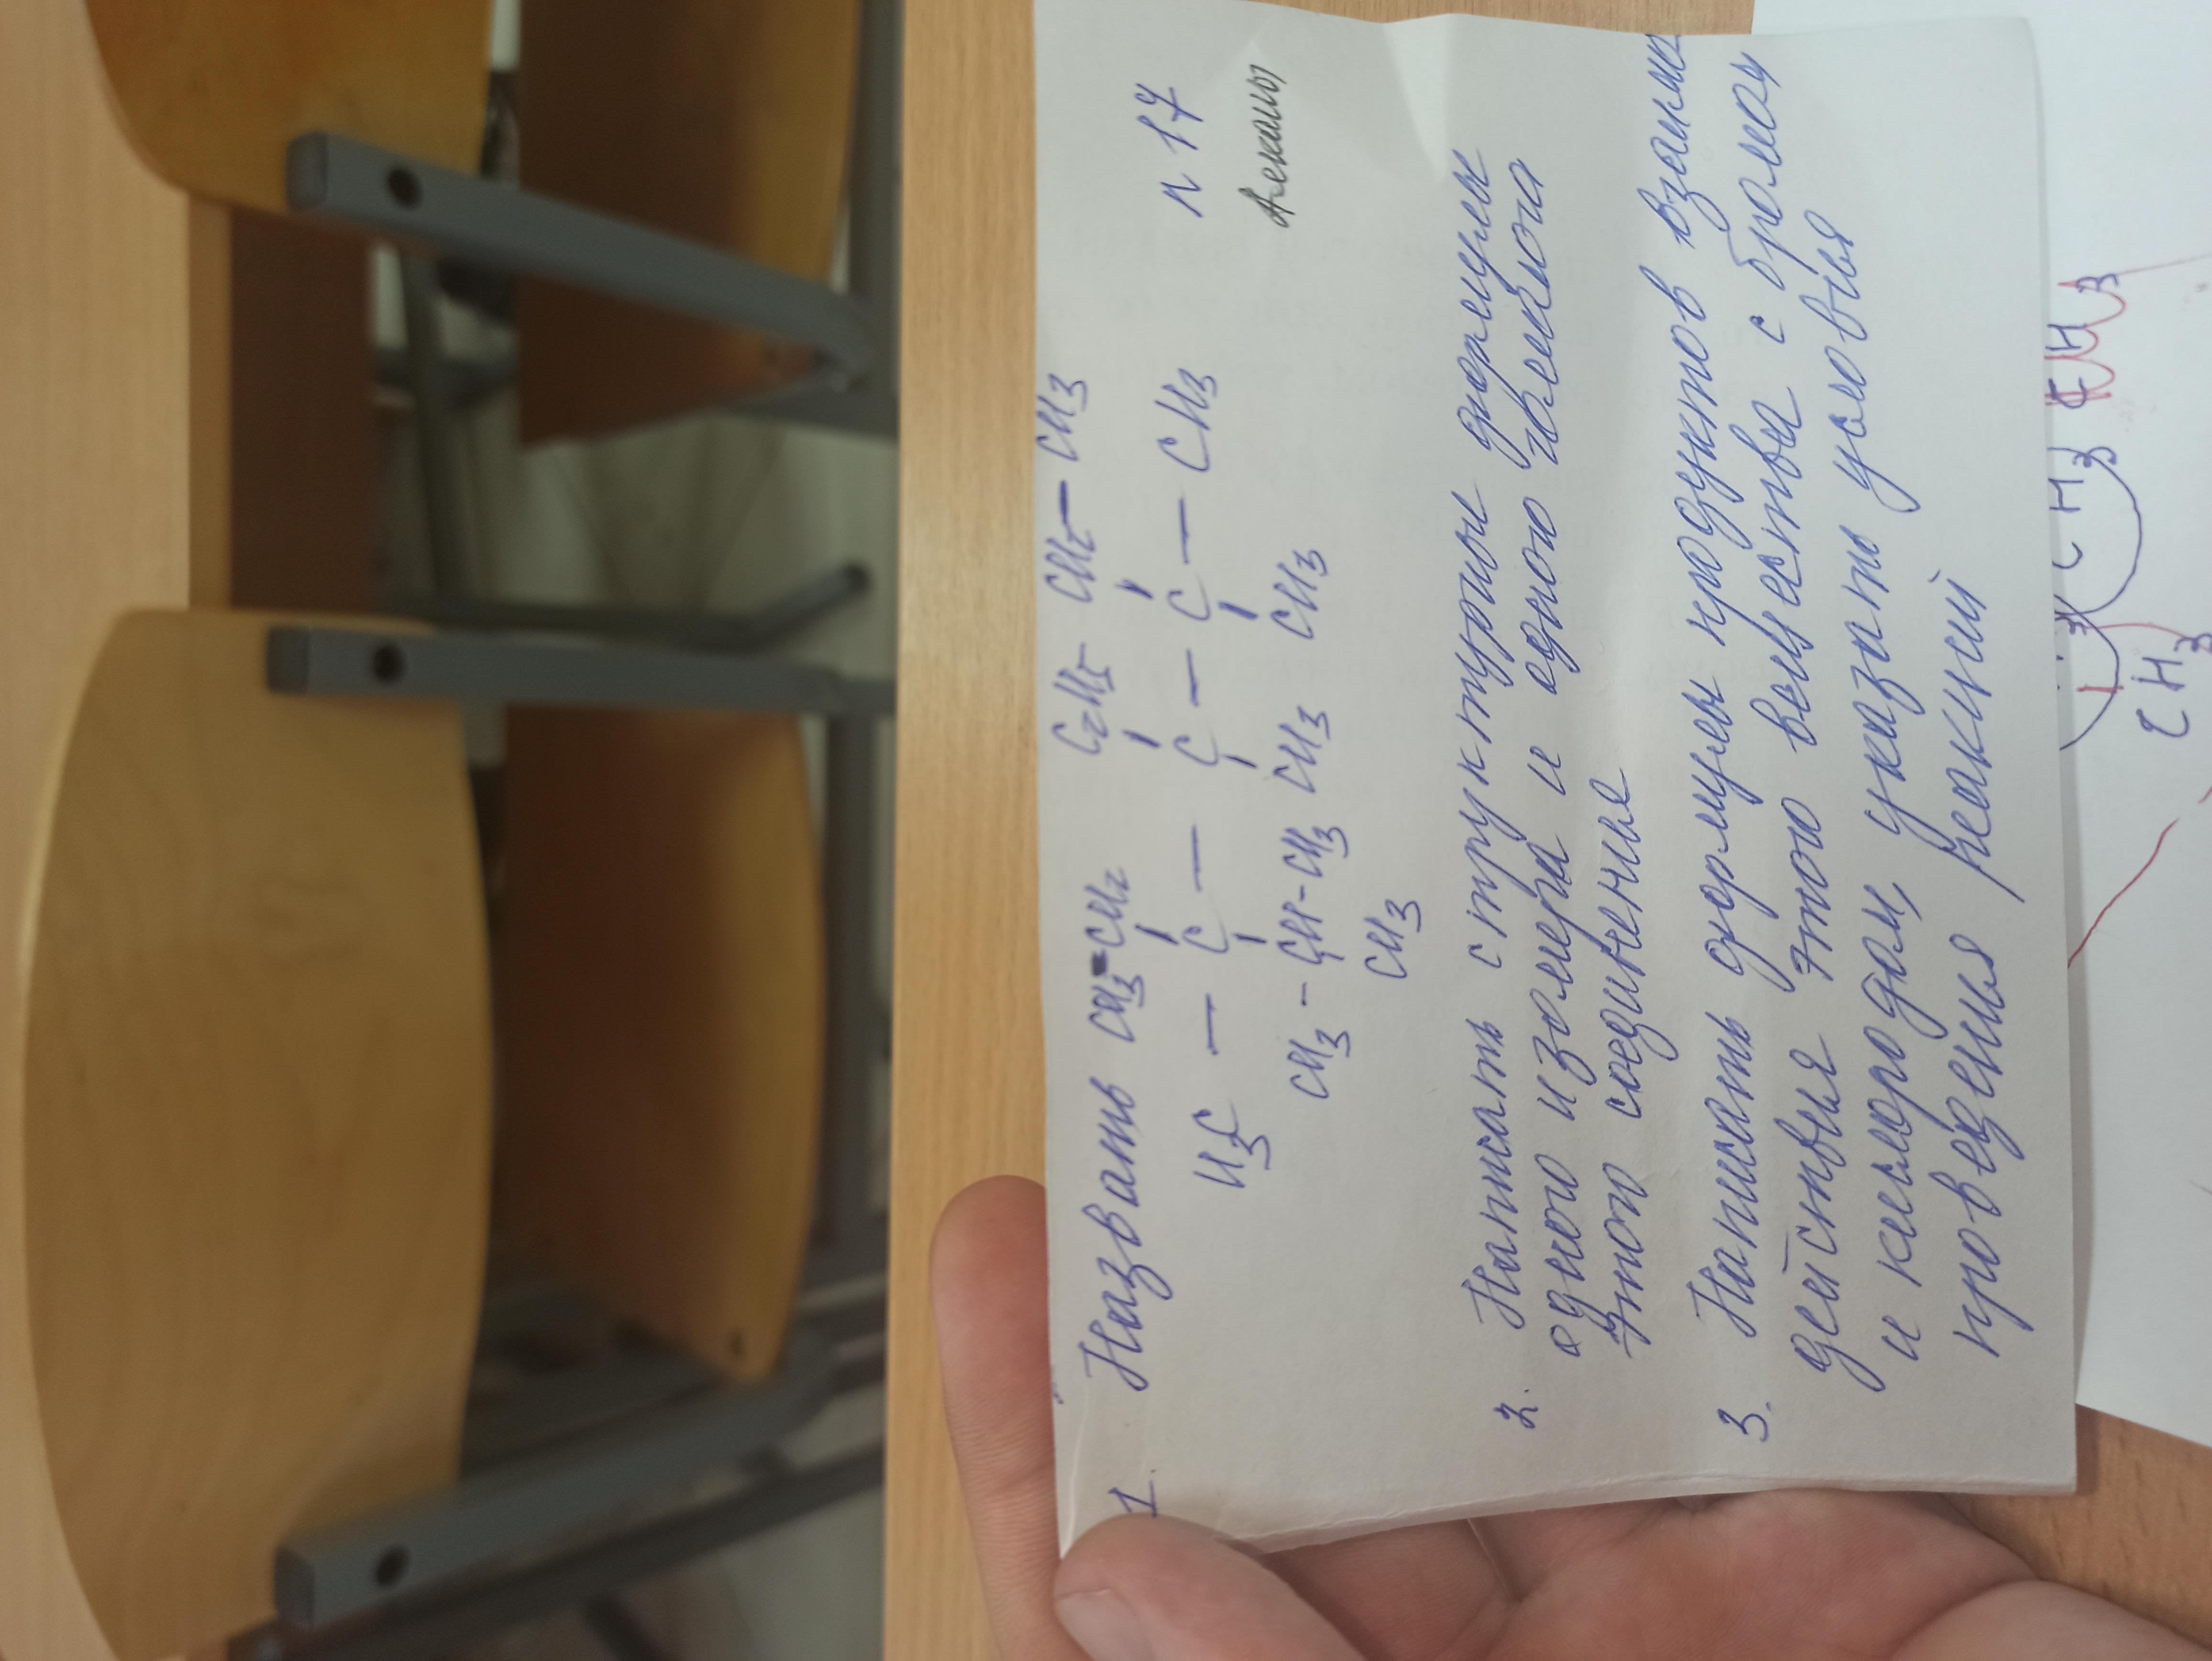 1. Назвать CH3-CH2 C2H5 CH2-CH3
H3C - C - C - C - CH3 n 17
CH3 - CH-CH3 CH3 CH3 Алканы
CH3
2. Написать структурные формулы
одного изомера и одного гомолога
этого соединения
3. Написать формулы продуктов взаимо
действия этого вещества с бромом,
и кислородом, указать условия
проведения реакций
CH3
CH3